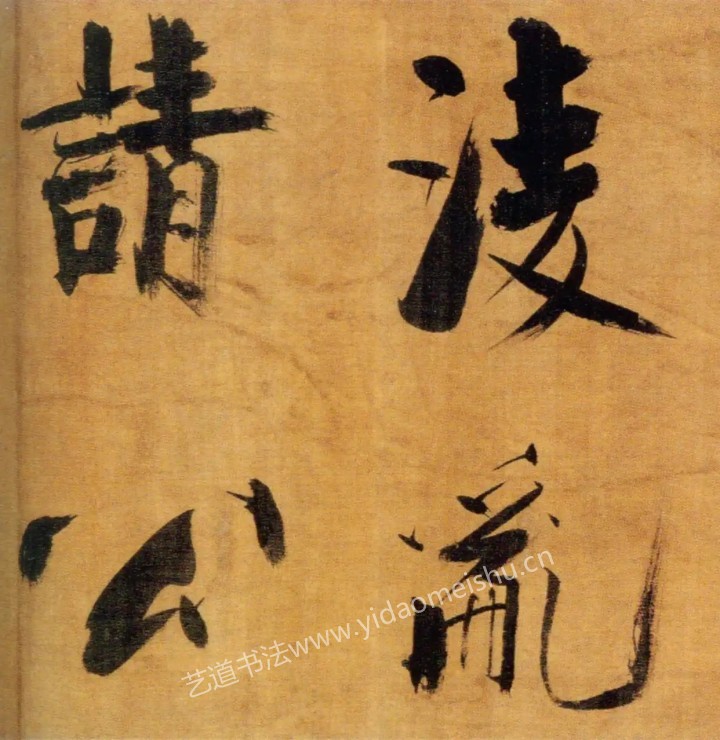 淩亂
請公
艺道书法www.yidaomeishu.cn